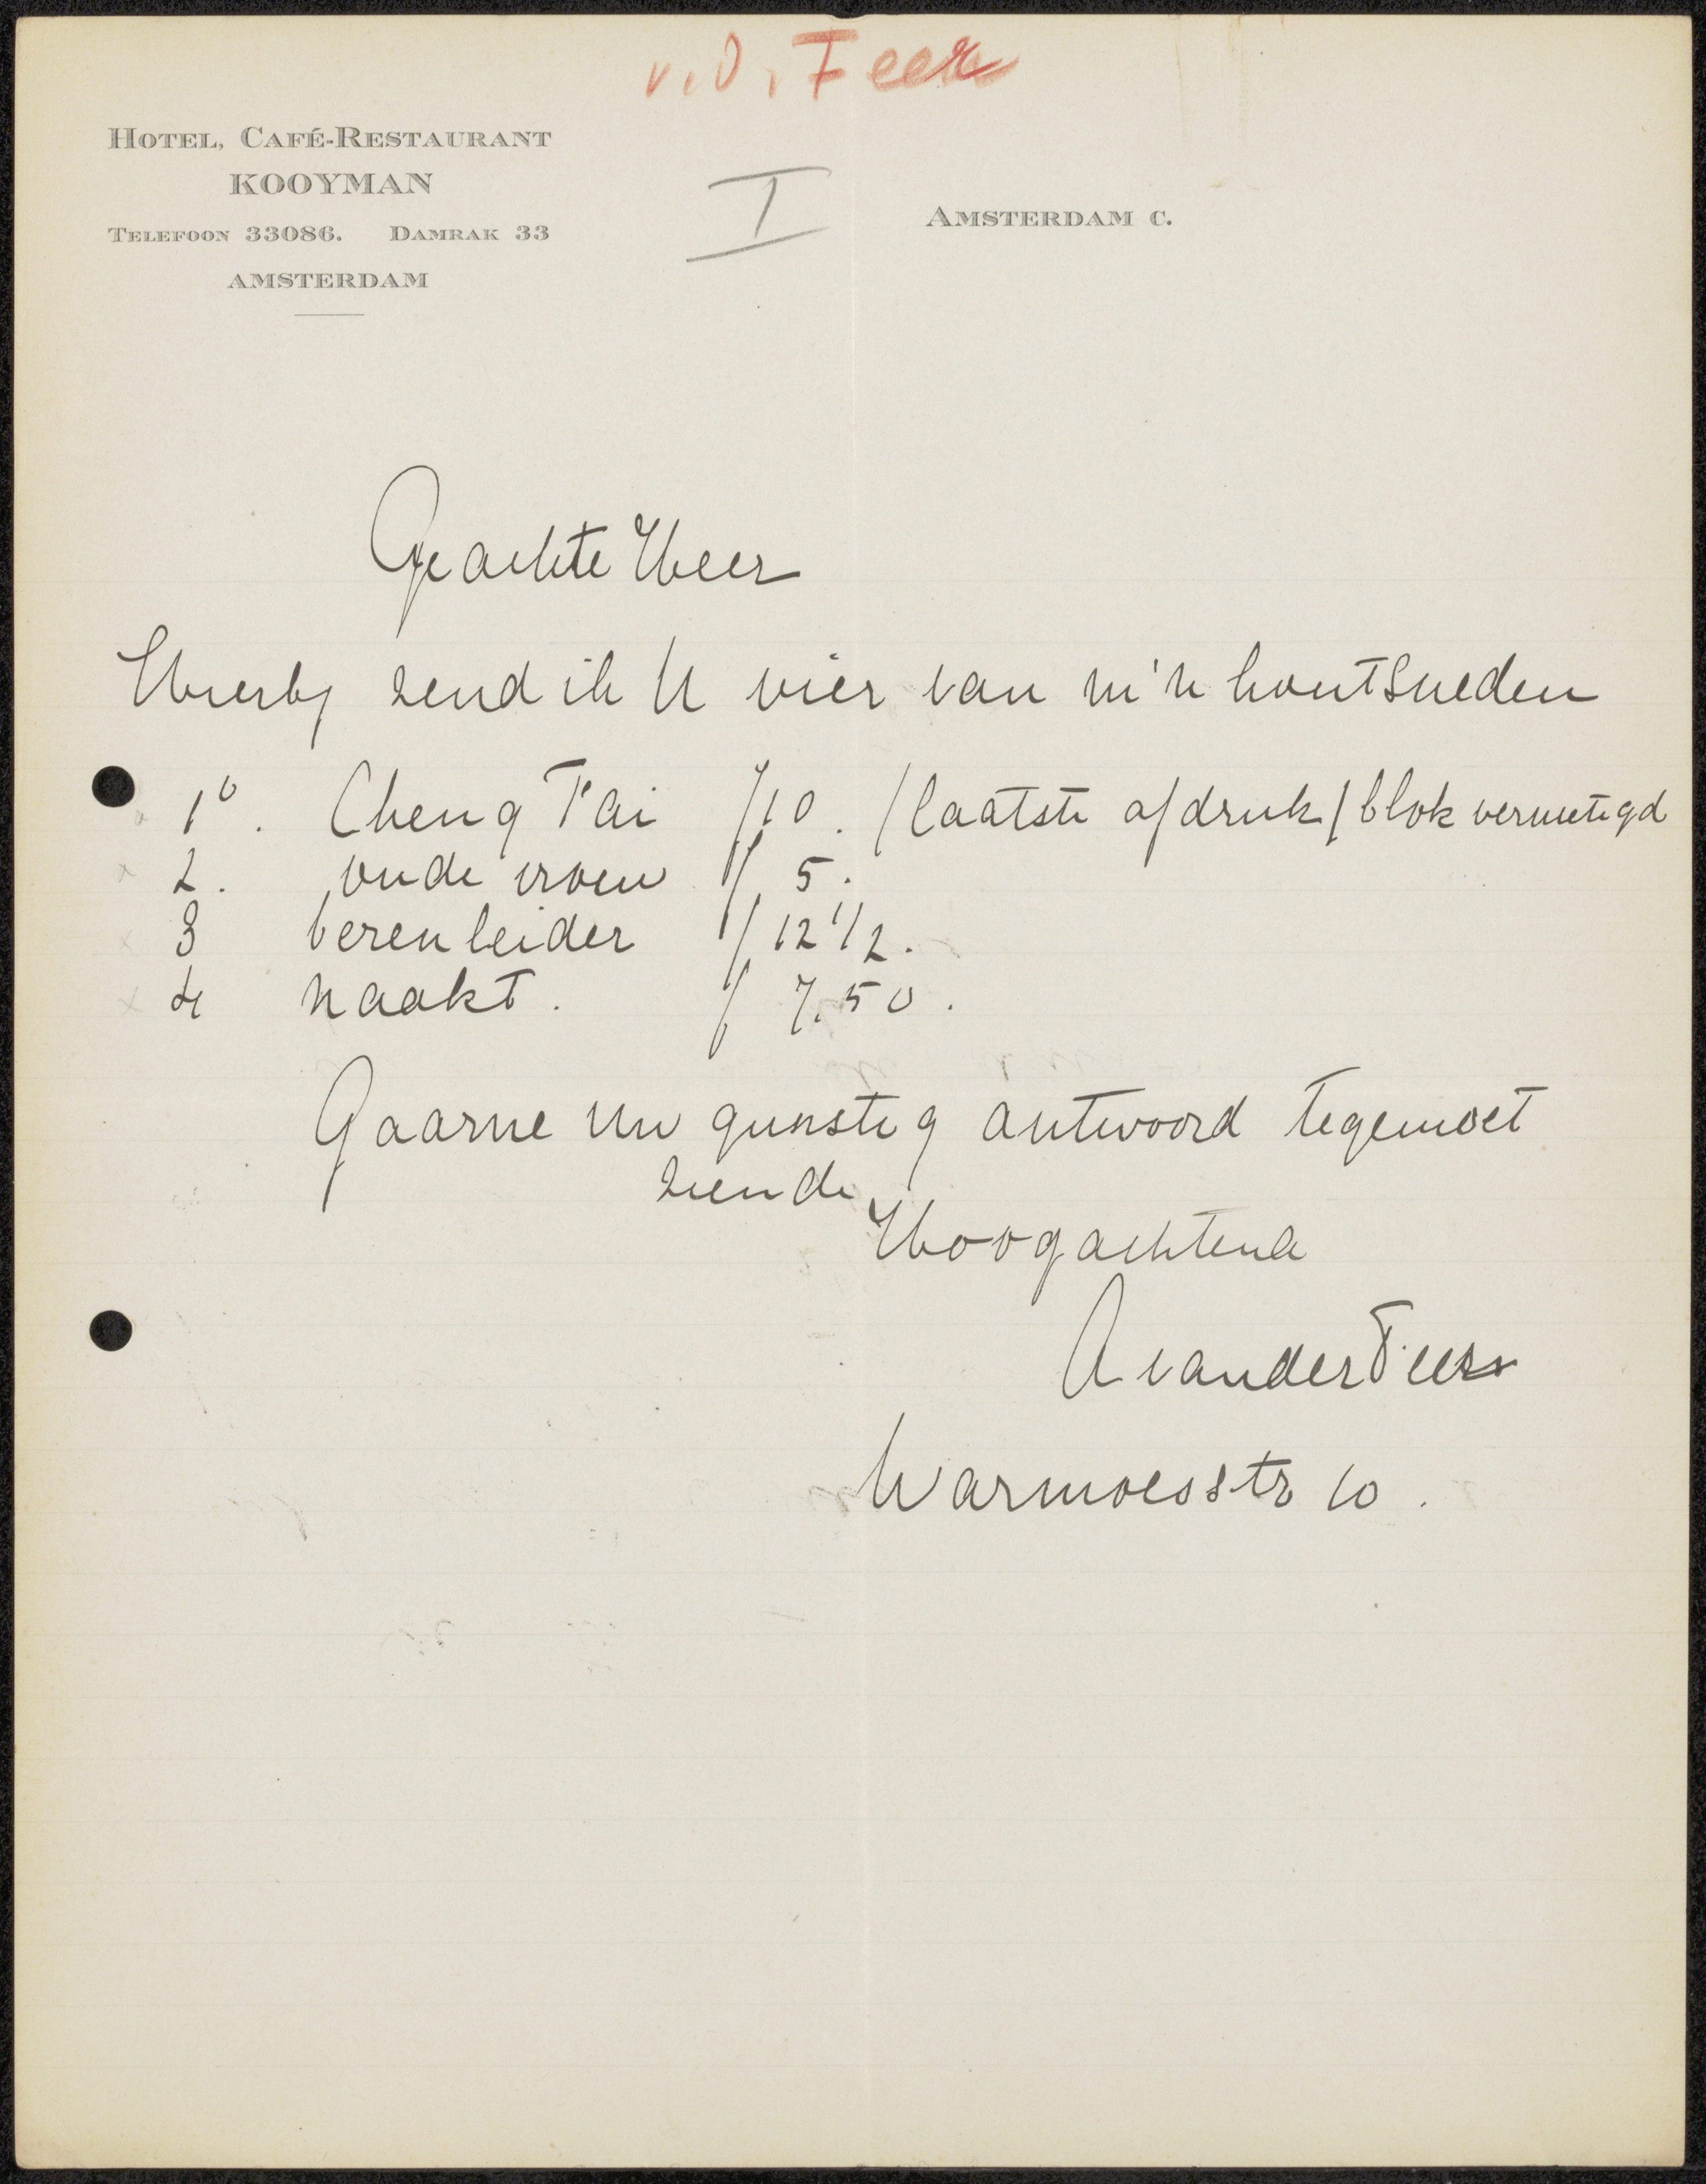 v.d. Feer
HOTEL, CAFÉ-RESTAURANT
KOOYMAN
TELEFOON 33086. DAMRAK 33
AMSTERDAM
I
AMSTERDAM C.
Geachte Heer
Hierby zend ik U vier van m'n houtsneden
1°. Cheng Tai f 10. / laatste afdruk / blok vernietigd
2. oude vrouw f 5.
3 berenleider f 12 1/2.
4 naakt. f 7.50.
Gaarne Uw gunstig antwoord tegemoet
ziende
Hoogachtend
A vander Feer
Warmoesstr 10.